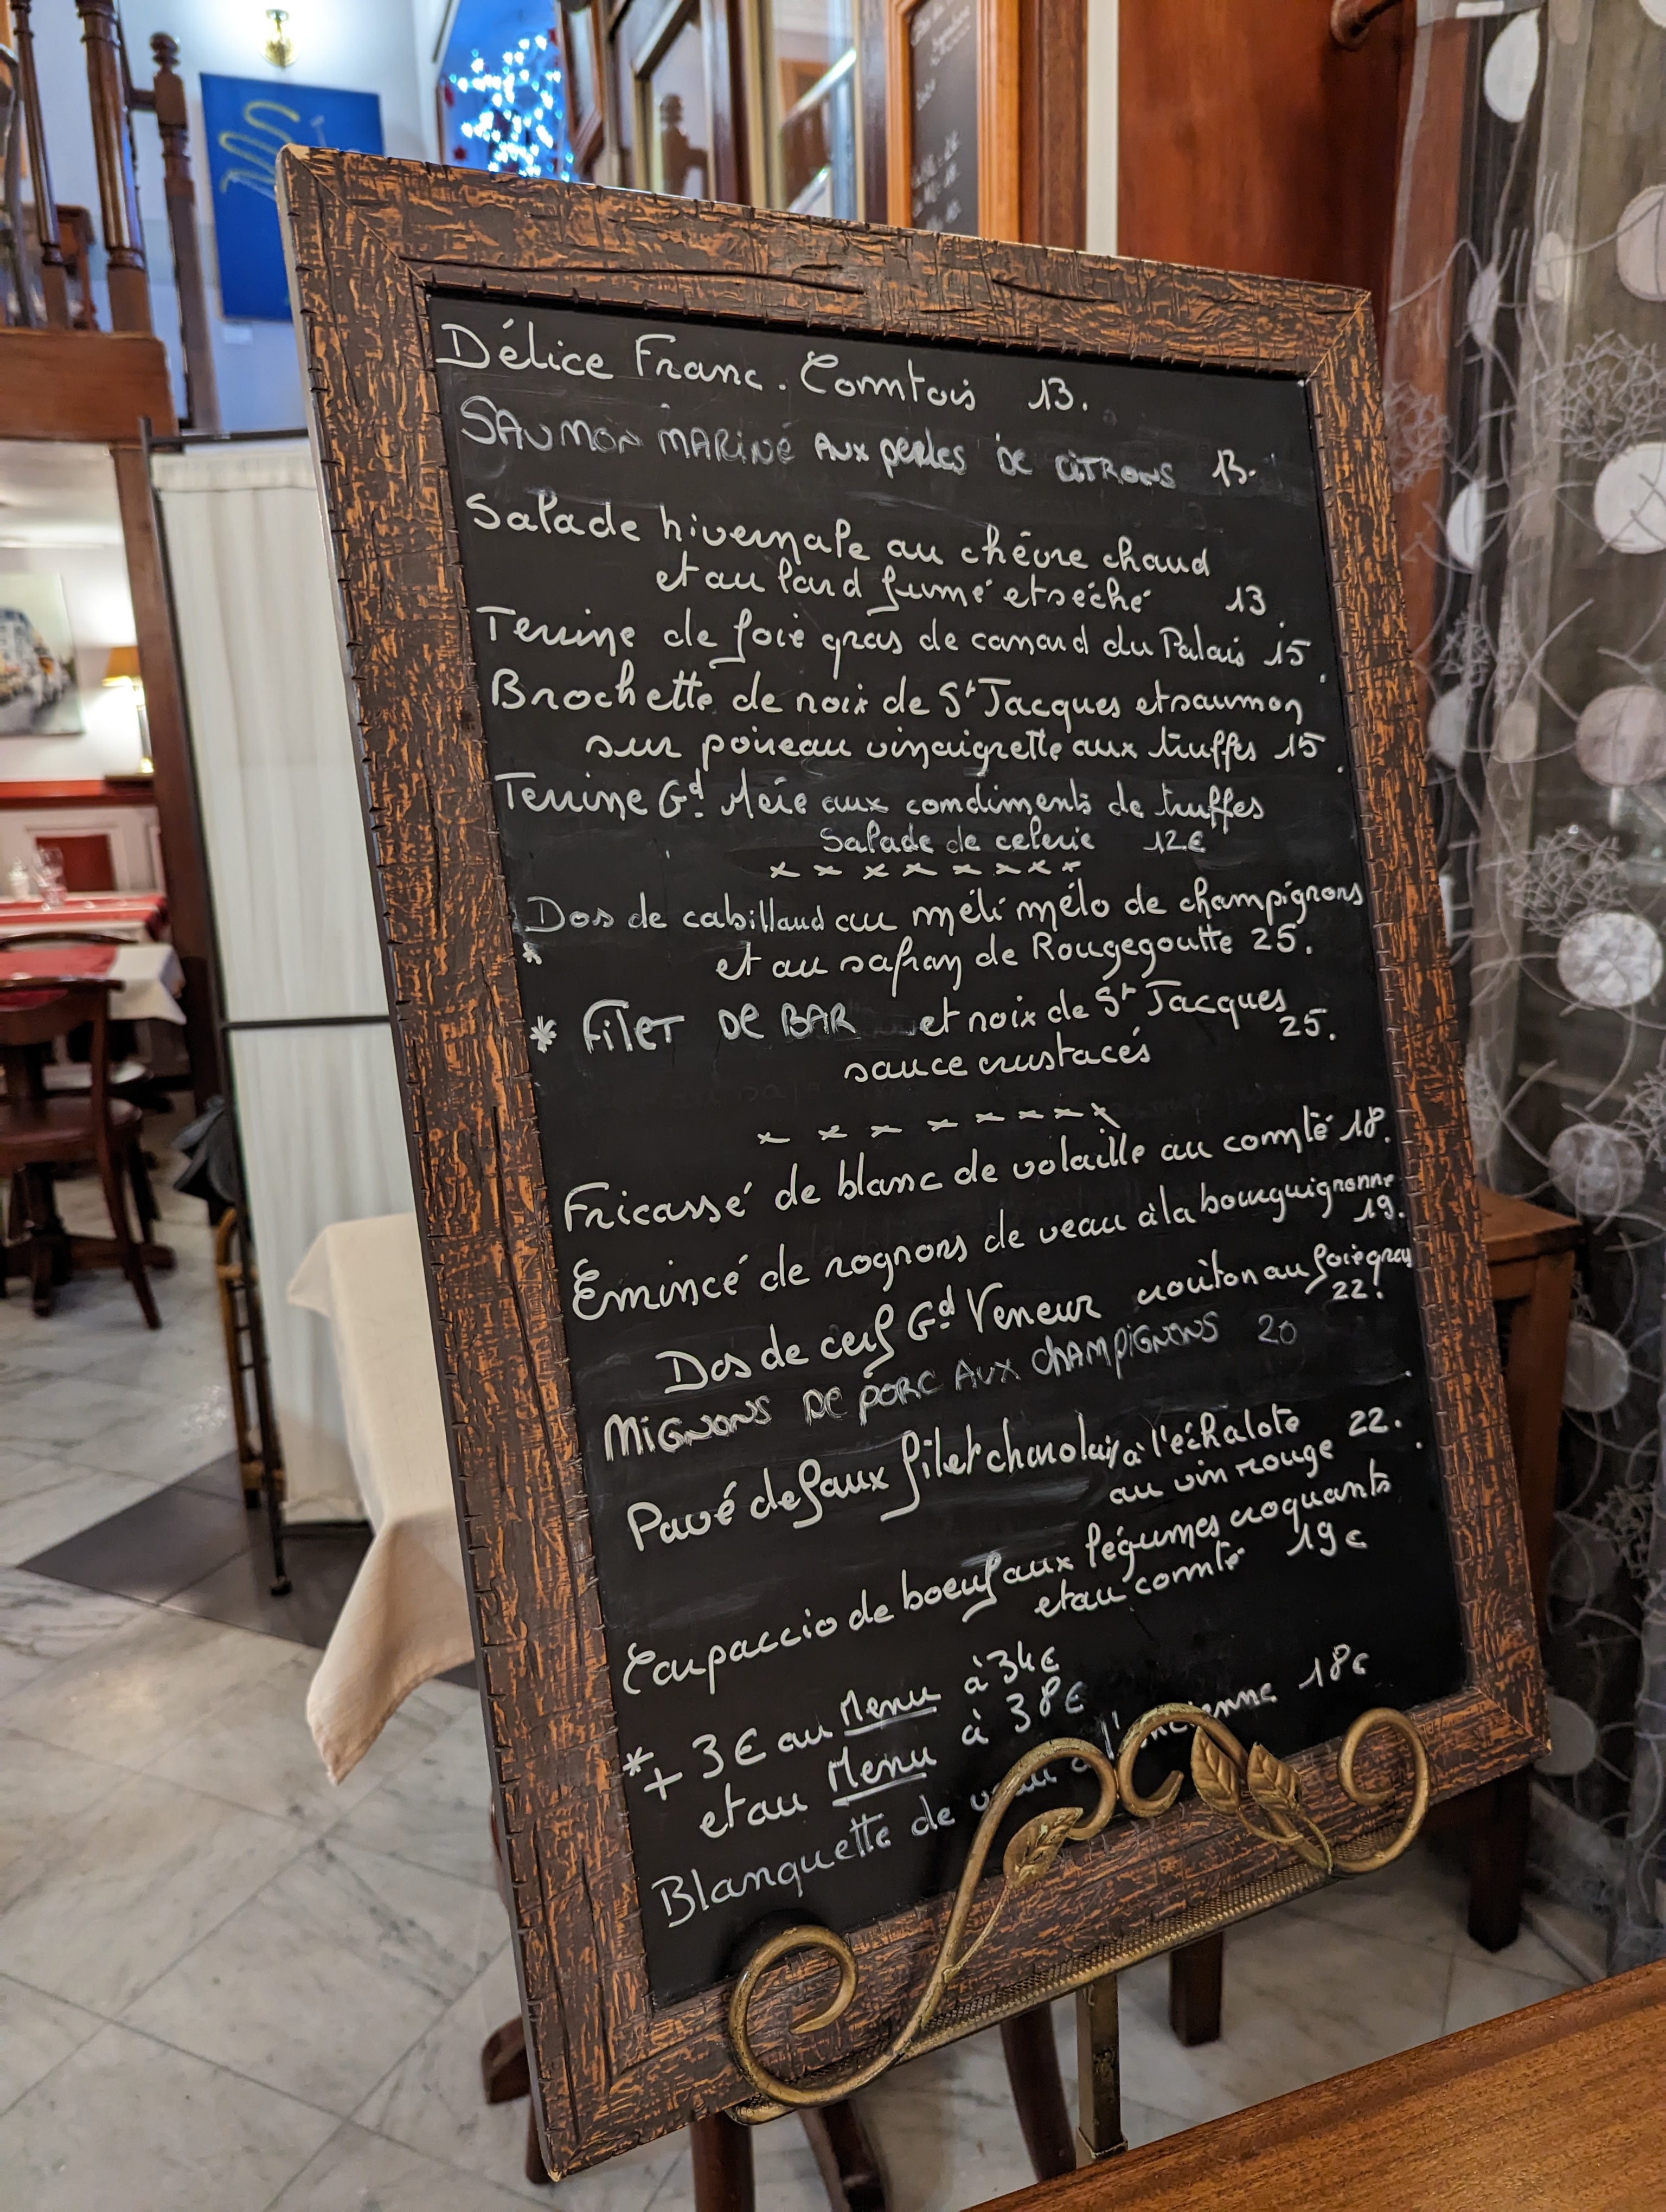 Délice Franc-Comtois 13.
SAUMON MARINÉ AUX perles DE CITRONS 13.
Salade hivernale au chèvre chaud
et au lard fumé et séché 13.
Terrine de foie gras de canard du Palais 15.
Brochette de noix de St Jacques et saumon
sur poireau vinaigrette aux truffes 15.
Terrine Gd Mère aux condiments de truffes
Salade de celerie 12€
x x x x x x x x
Dos de cabillaud au méli mélo de champignons
* et au safran de Rougegoutte 25.
* FILET DE BAR et noix de St Jacques
sauce crustacés 25.
x x x x x x x x
Fricassé de blanc de volaille au comté 18.
Emincé de rognons de veau à la bourguignonne
19.
Dos de cerf Gd Veneur croûton au foie gras
22.
MIGNONS DE PORC AUX CHAMPIGNONS 20
Pavé de faux filet charolais à l'échalote 22.
au vin rouge
Carpaccio de boeuf aux légumes croquants
et au comté 19€
*+ 3€ au Menu à 34€
et au Menu à 38€
Blanquette de 18€